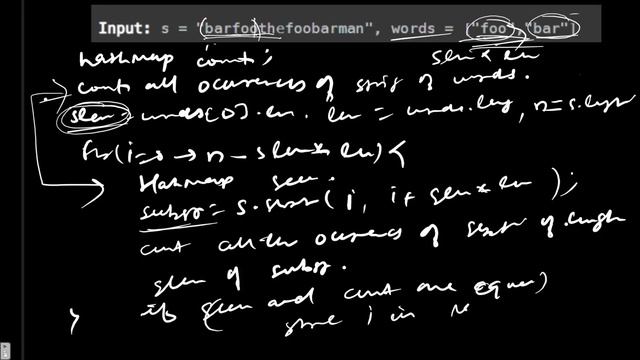 Input: s = "barfoothefoobarman", words = ["foo","bar"]
hashmap count; slen * len
count all occurences of string of words.
slen = words[0].len. len = words.leng, n = s.length
for(i=0 → n - slen * len) {
Hashmap seen.
substr = s.substr( i, i + slen * len );
cunt all the occurences of of length
slen of substr.
if (seen and count are equal)
store i in
}